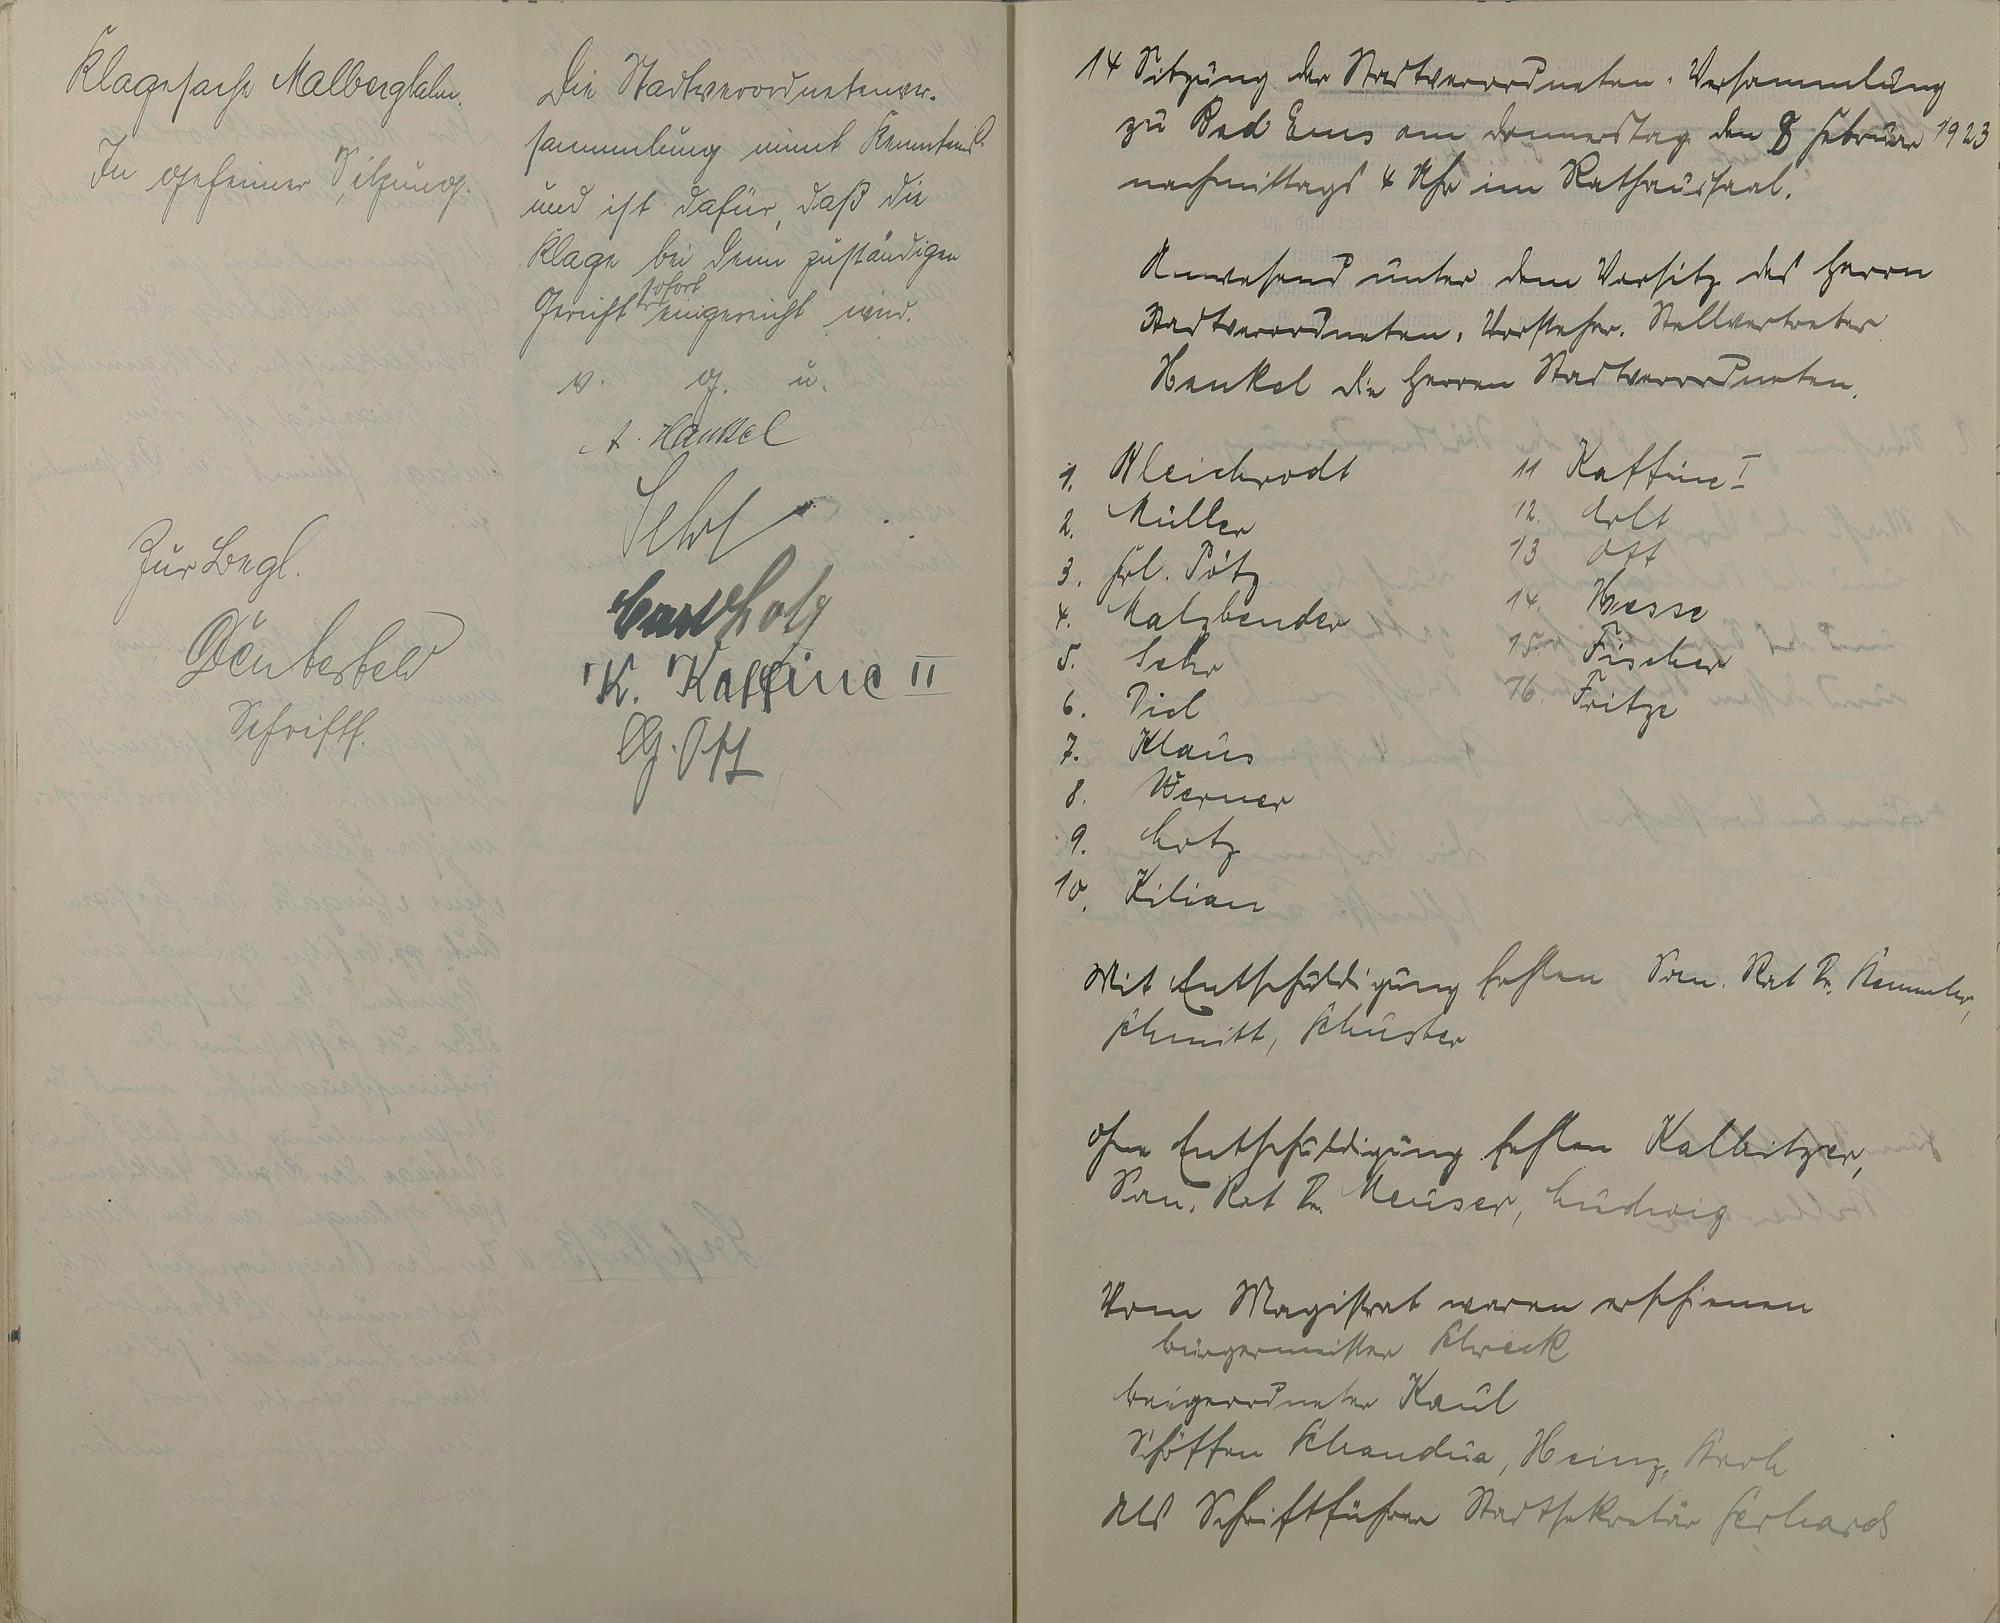 Klagesache Malbergbahn.
In geheimer Sitzung.
Zur Begl.
Schriftf.
Die Stadtverordnetenver-
sammlung nimt Kenntnis
und ist dafür, daß die
Klage bei dem zuständigen
sofort
Gericht eingereicht wird.
v. g. u.
A. Henkel
Sehr
Carl Lotz
K. Kaffine II
G. Ott
14 Sitzung der Stadtverordneten-Versammlung
zu Bad Ems am Donnerstag den 8 Februar 1923
nachmittags 4 Uhr im Rathaussaal.
Anwesend unter dem Vorsitz des Herrn
Stadtverordneten-Vorsteher-Stellvertreter
Henkel die Herren Stadtverordneten.
1. Bleichrodt
2. Müller
3. Frl. Pötz
4. Malzbender
5. Sehr
6. Diel
7. Klaus
8. Werner
9. Lotz
10. Kilian
11 Kaffine I
12. Erlt
13. Ott
14. Hesse
15. Fischer
16. Fritze
Mit Entschuldigung fehlen San. Rat Dr. Stemmler,
Schmitt, Schuster
ohne Entschuldigung fehlen Kalbitzer,
San. Rat Dr. Meuser, Ludwig
Vom Magistrat waren erschienen
Bürgermeister Schreck
Beigeordneter Kaul
Schöffen Schandua, Heinz,
Als Schriftführer Stadtsekretär Gerhards